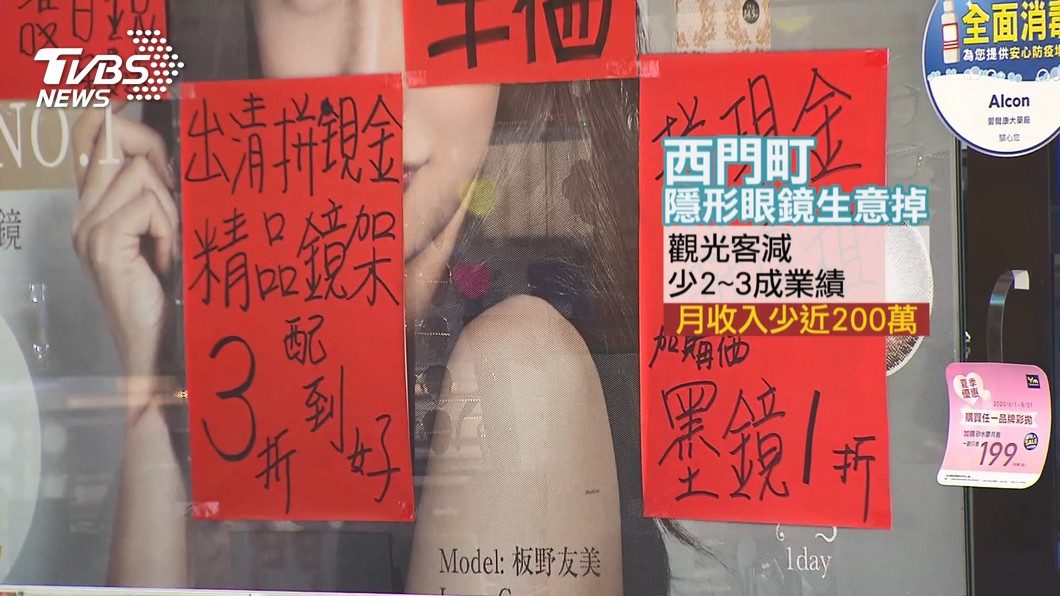 TVBS
NEWS
NO.1
鏡
半價
出清拼現金
精品鏡架
3折
配到好
拚現金
西門町
隱形眼鏡生意掉
觀光客減
少2~3成業績
月收入少近200萬
加購價
墨鏡1折
全面消毒
為您提供安心防疫
Alcon
愛爾康大藥廠
關心您
夏季
優惠
2020/6/1~8/31
購買任一品牌彩拋
199
Model: 板野友美
1day